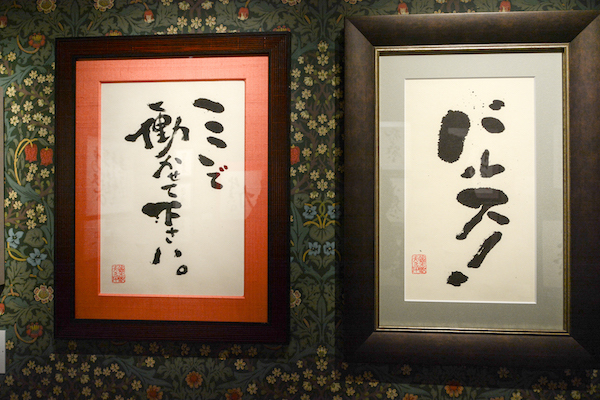 ここで
働かせて下さい。
バルス!